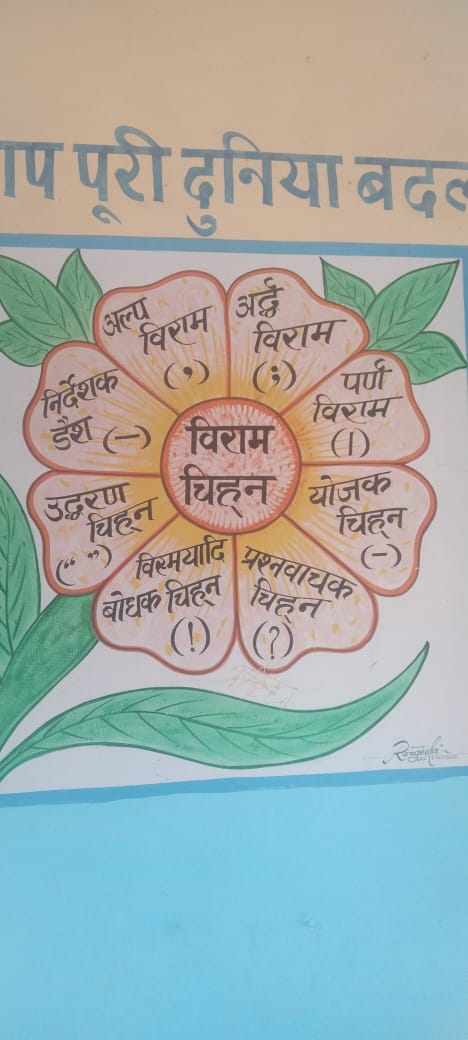 पूरी दुनिया
विराम
चिह्न
अल्प
विराम
(,)
अर्द्ध
विराम
(;)
पर्ण
विराम
(।)
योजक
चिह्न
(-)
प्रश्नवाचक
चिह्न
(?)
विस्मयादि
बोधक चिह्न
(!)
उद्धरण
चिह्न
(“ ”)
निर्देशक
डैश (—)